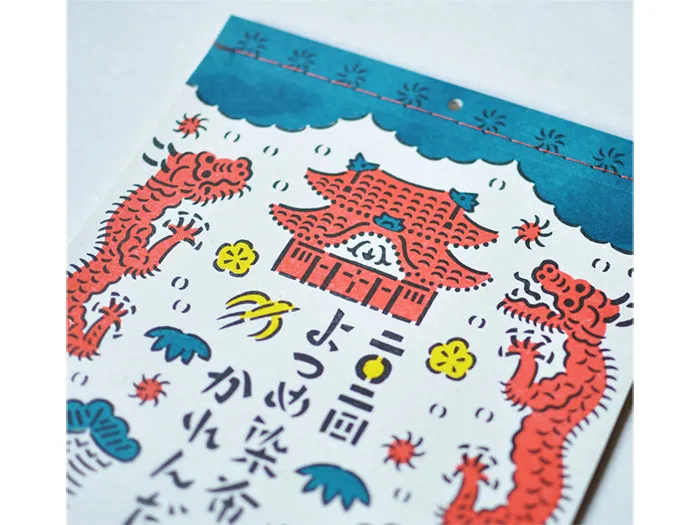 二〇二四
よつめ染布
かれんだ